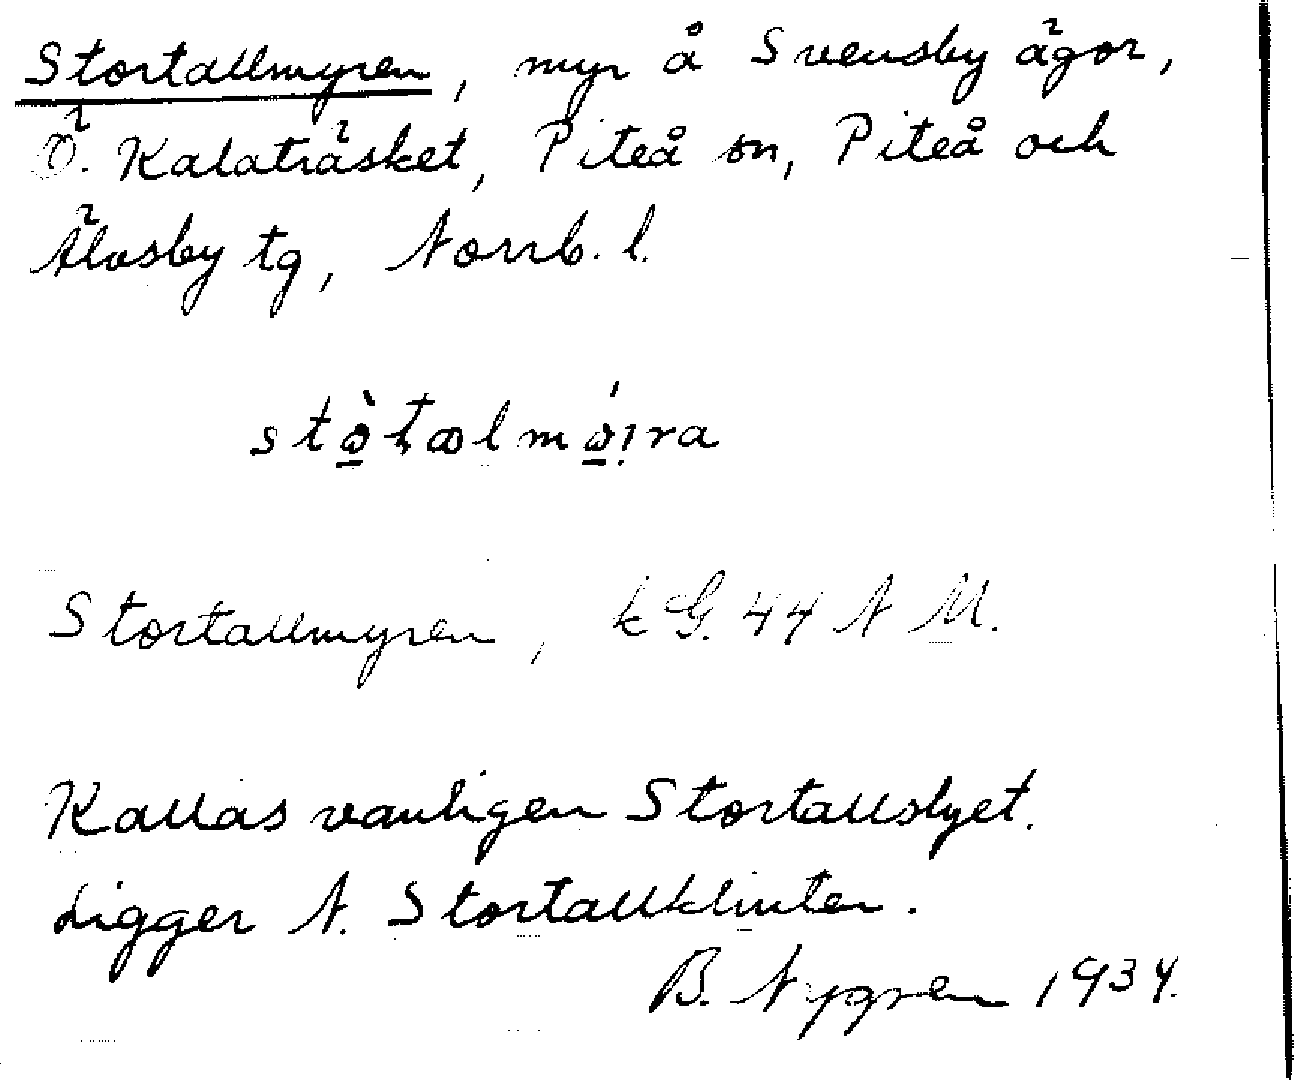 Stortallmyren, myr å Svensby ägor,
Ö. Kalaträsket, Piteå sn, Piteå och
Älvsby tg, Norrb. l.
Stortallmyren, k G. 44 N M.
Kallas vanligen Stortallslyet.
Ligger N. Stortallklinten.
B. Nygren 1934.